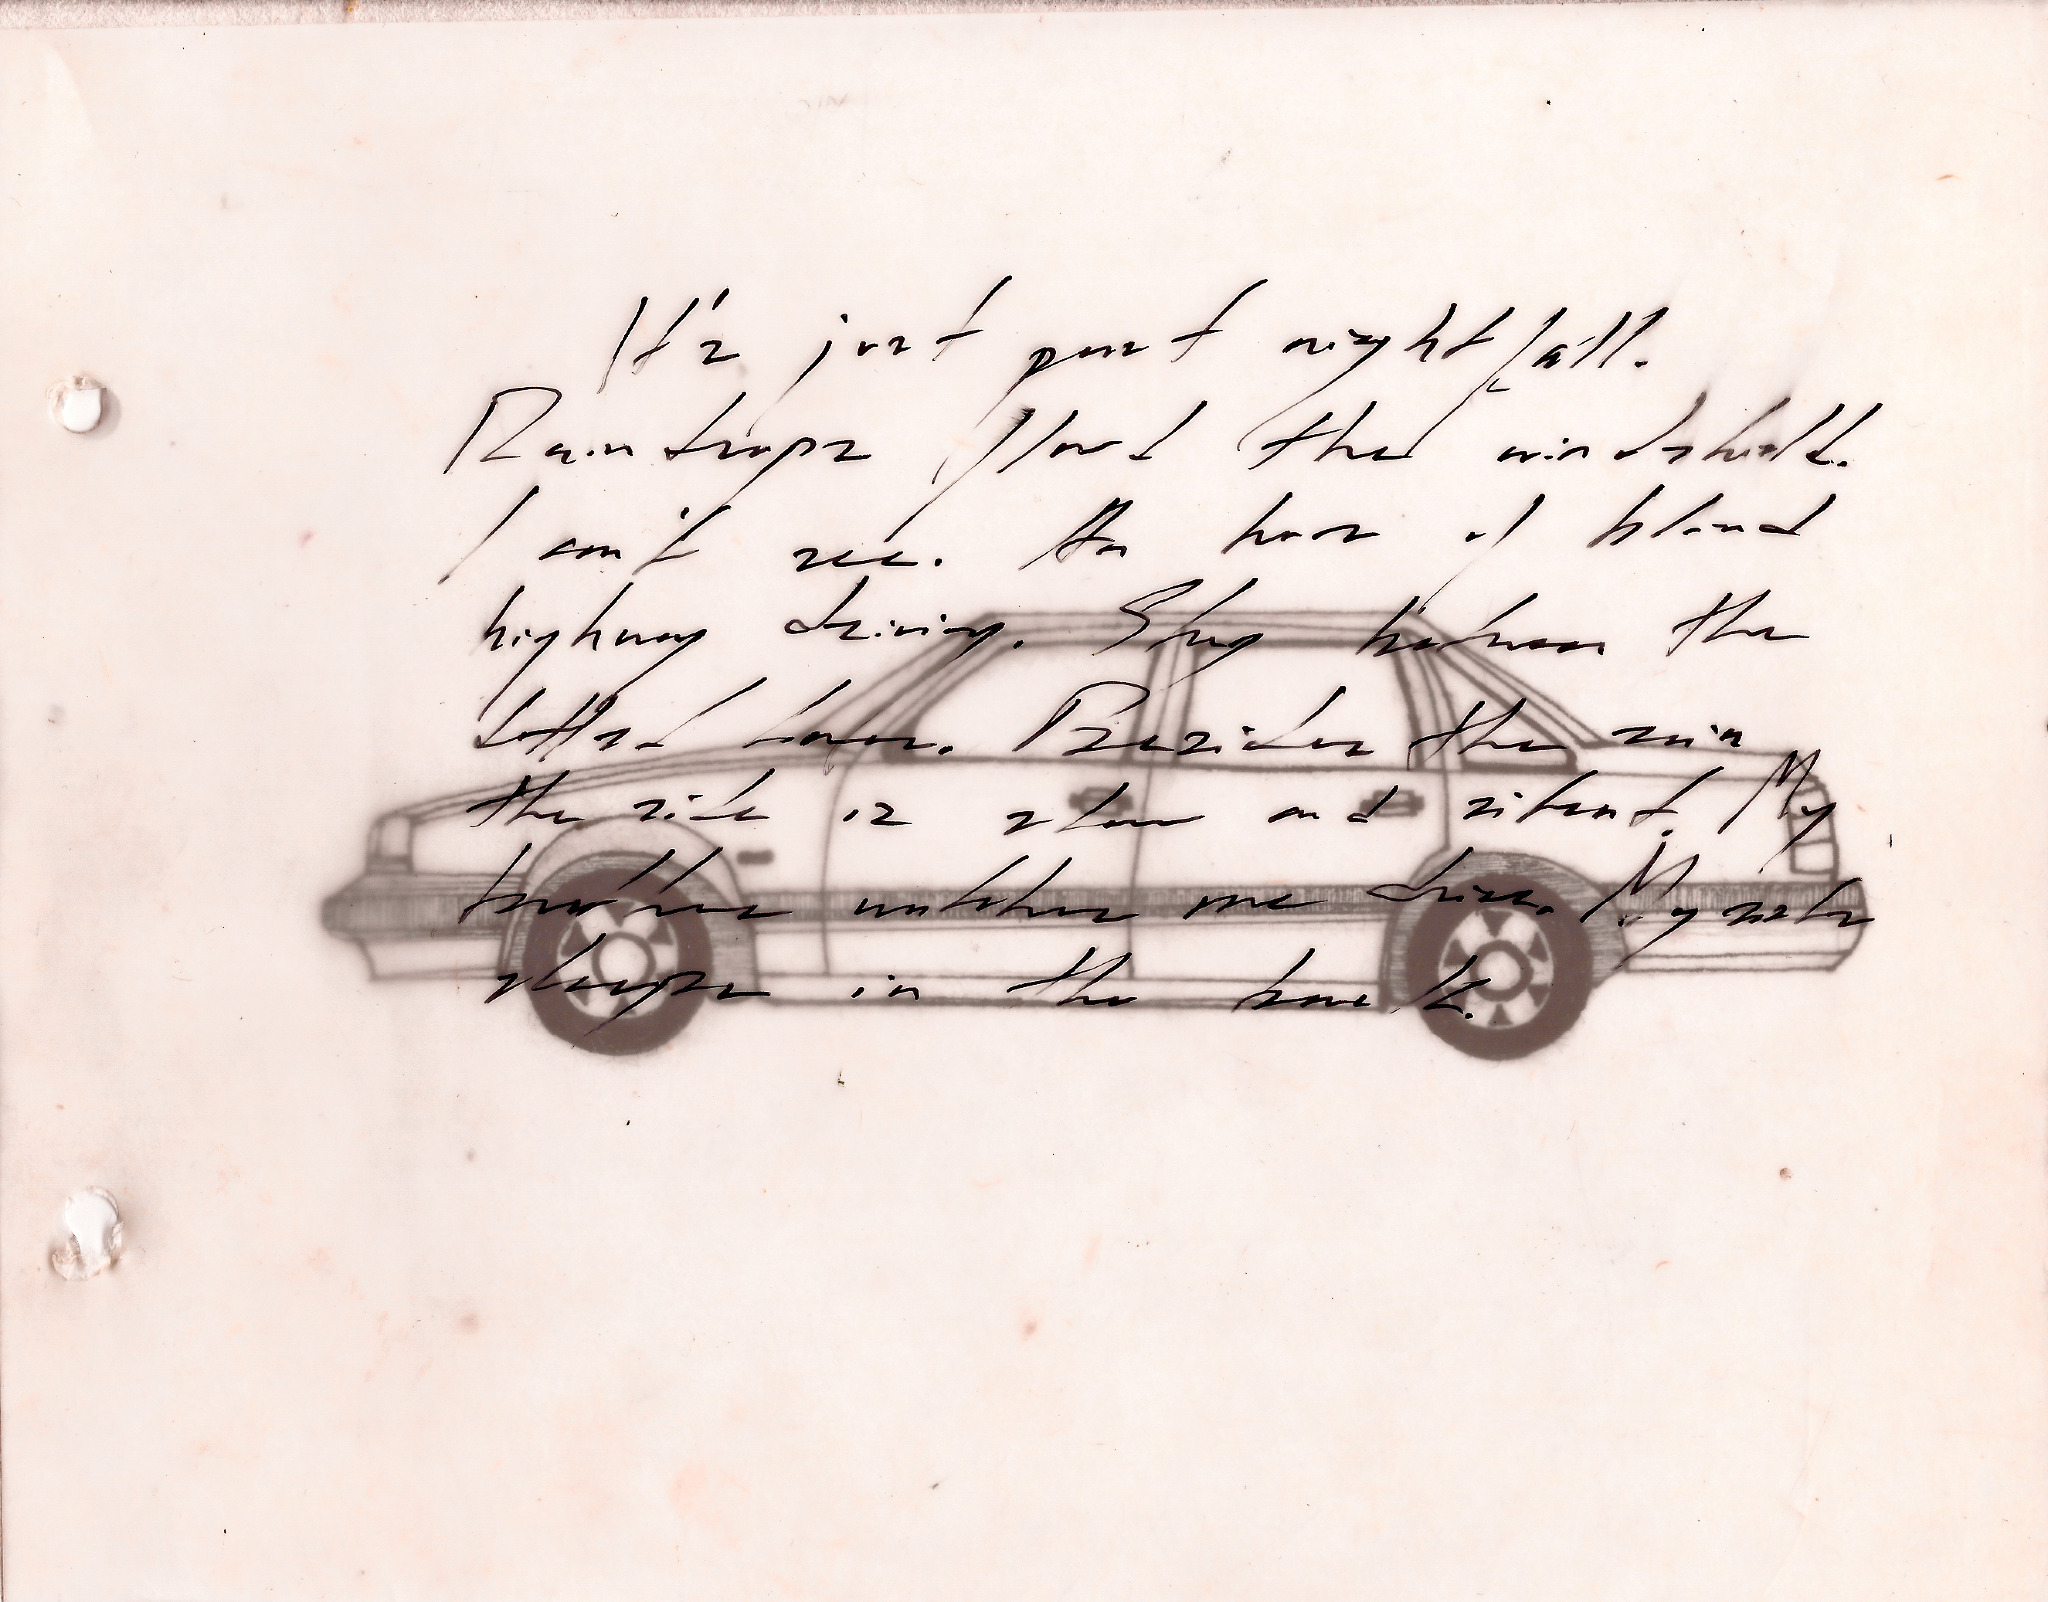 It's just past nightfall.
Raindrops flood the windshield.
I can't see. An hour of blind
highway driving. Stay between the
dotted lines. Besides the rain
the ride is slow and silent. My
brother watches me drive. My sister
sleeps in the back.